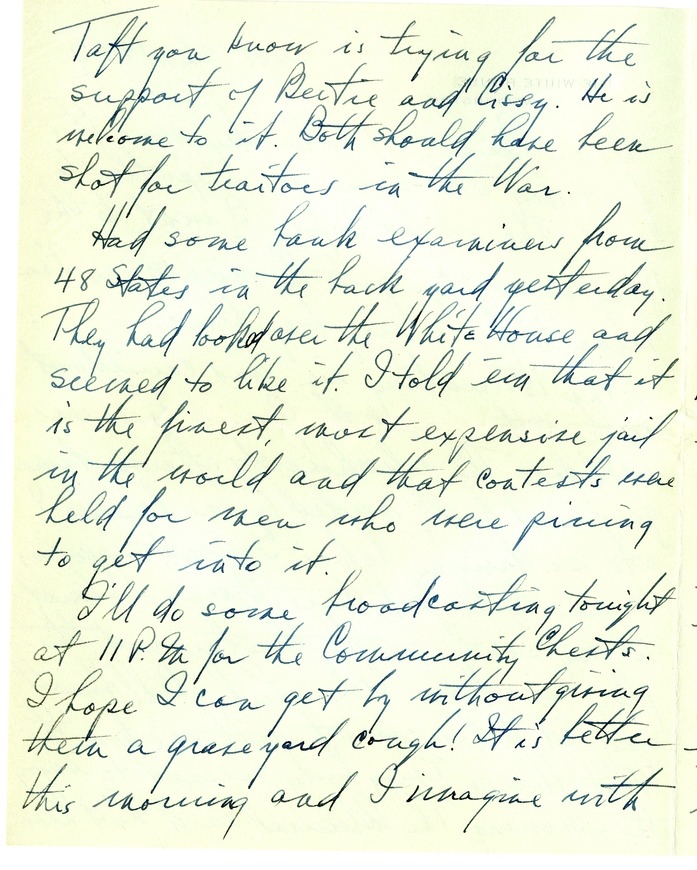 Taft you know is trying for the
support of Bertie and Cissy. He is
welcome to it. Both should have been
shot for traitors in the War.
Had some bank examiners from
48 States in the back yard yesterday.
They had looked over the White House and
seemed to like it. I told 'em that it
is the finest, most expensive jail
in the world and that contests were
held for men who were pining
to get into it.
I'll do some broadcasting tonight
at 11 P.M for the Community Chests.
I hope I can get by without giving
them a graveyard cough! It is better
this morning and I imagine with